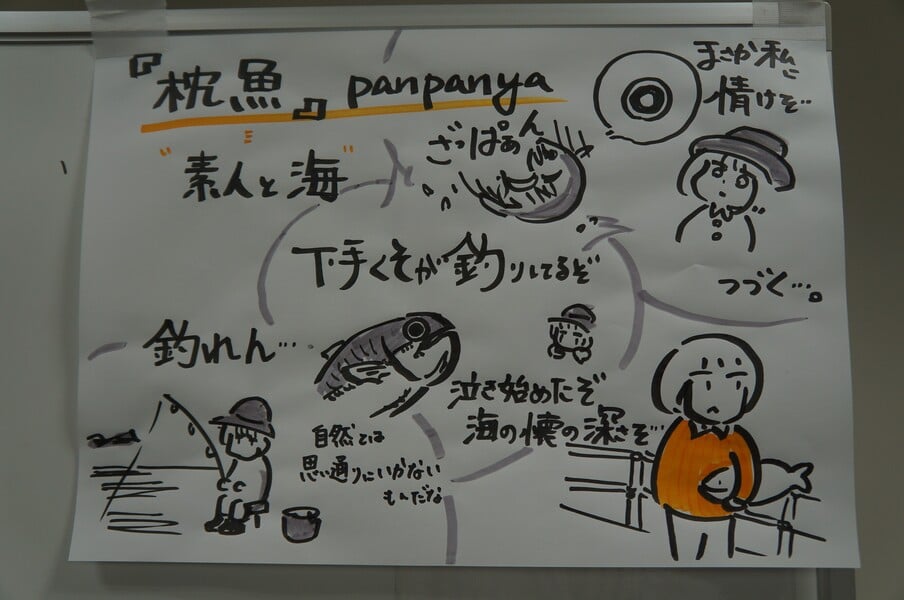 『枕魚』 panpanya
"素人と海"
ざっぱぁん
まさか私に
情けを…
下手くそが釣りしてるぞ
つづく…。
釣れん…
泣き始めたぞ
海の懐の深さぞ…
自然とは
思い通りにいかない
もんだな